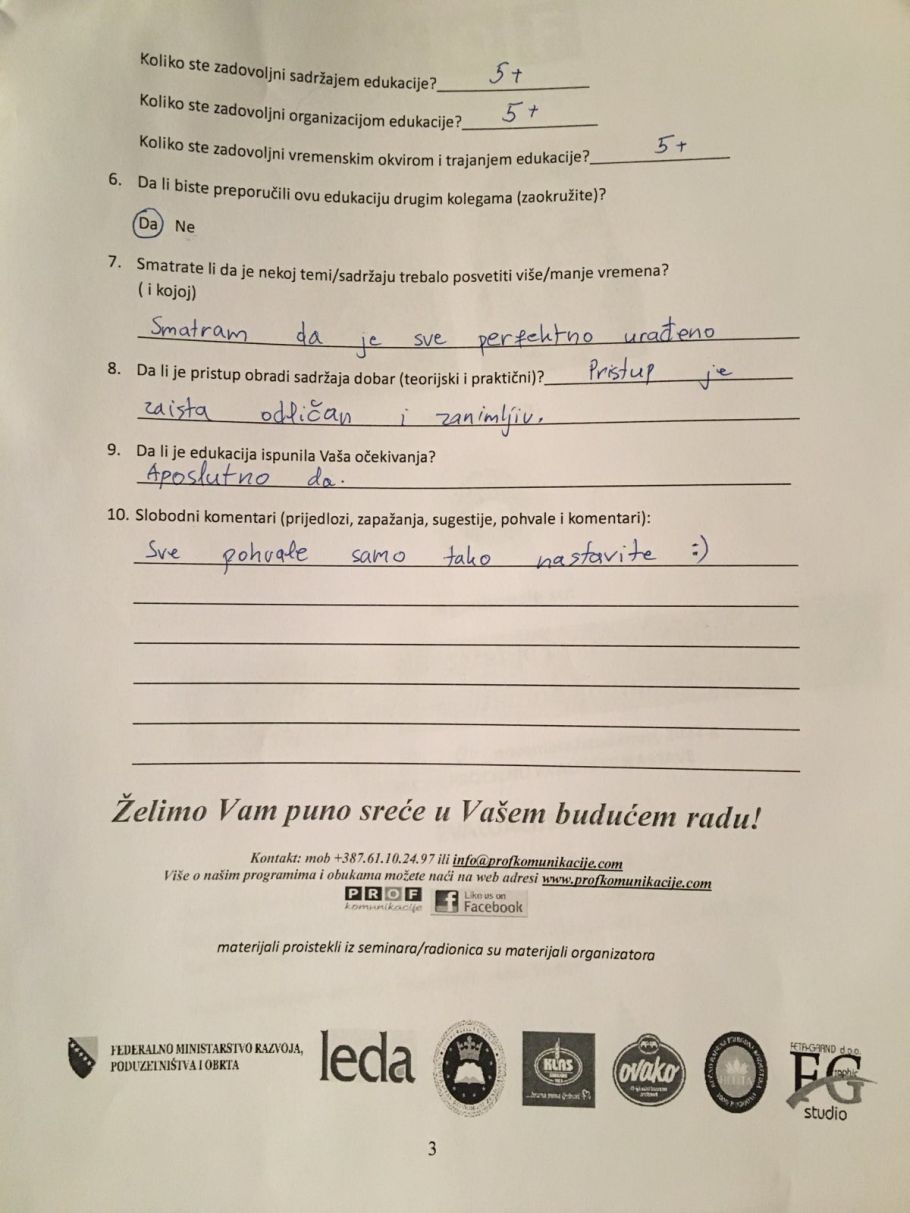 Koliko ste zadovoljni sadržajem edukacije? 5+
Koliko ste zadovoljni organizacijom edukacije? 5+
Koliko ste zadovoljni vremenskim okvirom i trajanjem edukacije? 5+
6. Da li biste preporučili ovu edukaciju drugim kolegama (zaokružite)?
Da Ne
7. Smatrate li da je nekoj temi/sadržaju trebalo posvetiti više/manje vremena?
( i kojoj)
Smatram da je sve perfektno urađeno
8. Da li je pristup obradi sadržaja dobar (teorijski i praktični)? Pristup je
zaista odličan i zanimljiv.
9. Da li je edukacija ispunila Vaša očekivanja?
Aposlutno da.
10. Slobodni komentari (prijedlozi, zapažanja, sugestije, pohvale i komentari):
Sve pohvale samo tako nastavite :)
Želimo Vam puno sreće u Vašem budućem radu!
Kontakt: mob +387.61.10.24.97 ili info@profkomunikacije.com
Više o našim programima i obukama možete naći na web adresi www.profkomunikacije.com
PROF
komunikacije
Like us on
Facebook
materijali proistekli iz seminara/radionica su materijali organizatora
FEDERALNO MINISTARSTVO RAZVOJA,
PODUZETNIŠTVA I OBRTA
leda
KLAS
ovako
FETA-GRAND d.o.o.
FG
graphic
studio
3